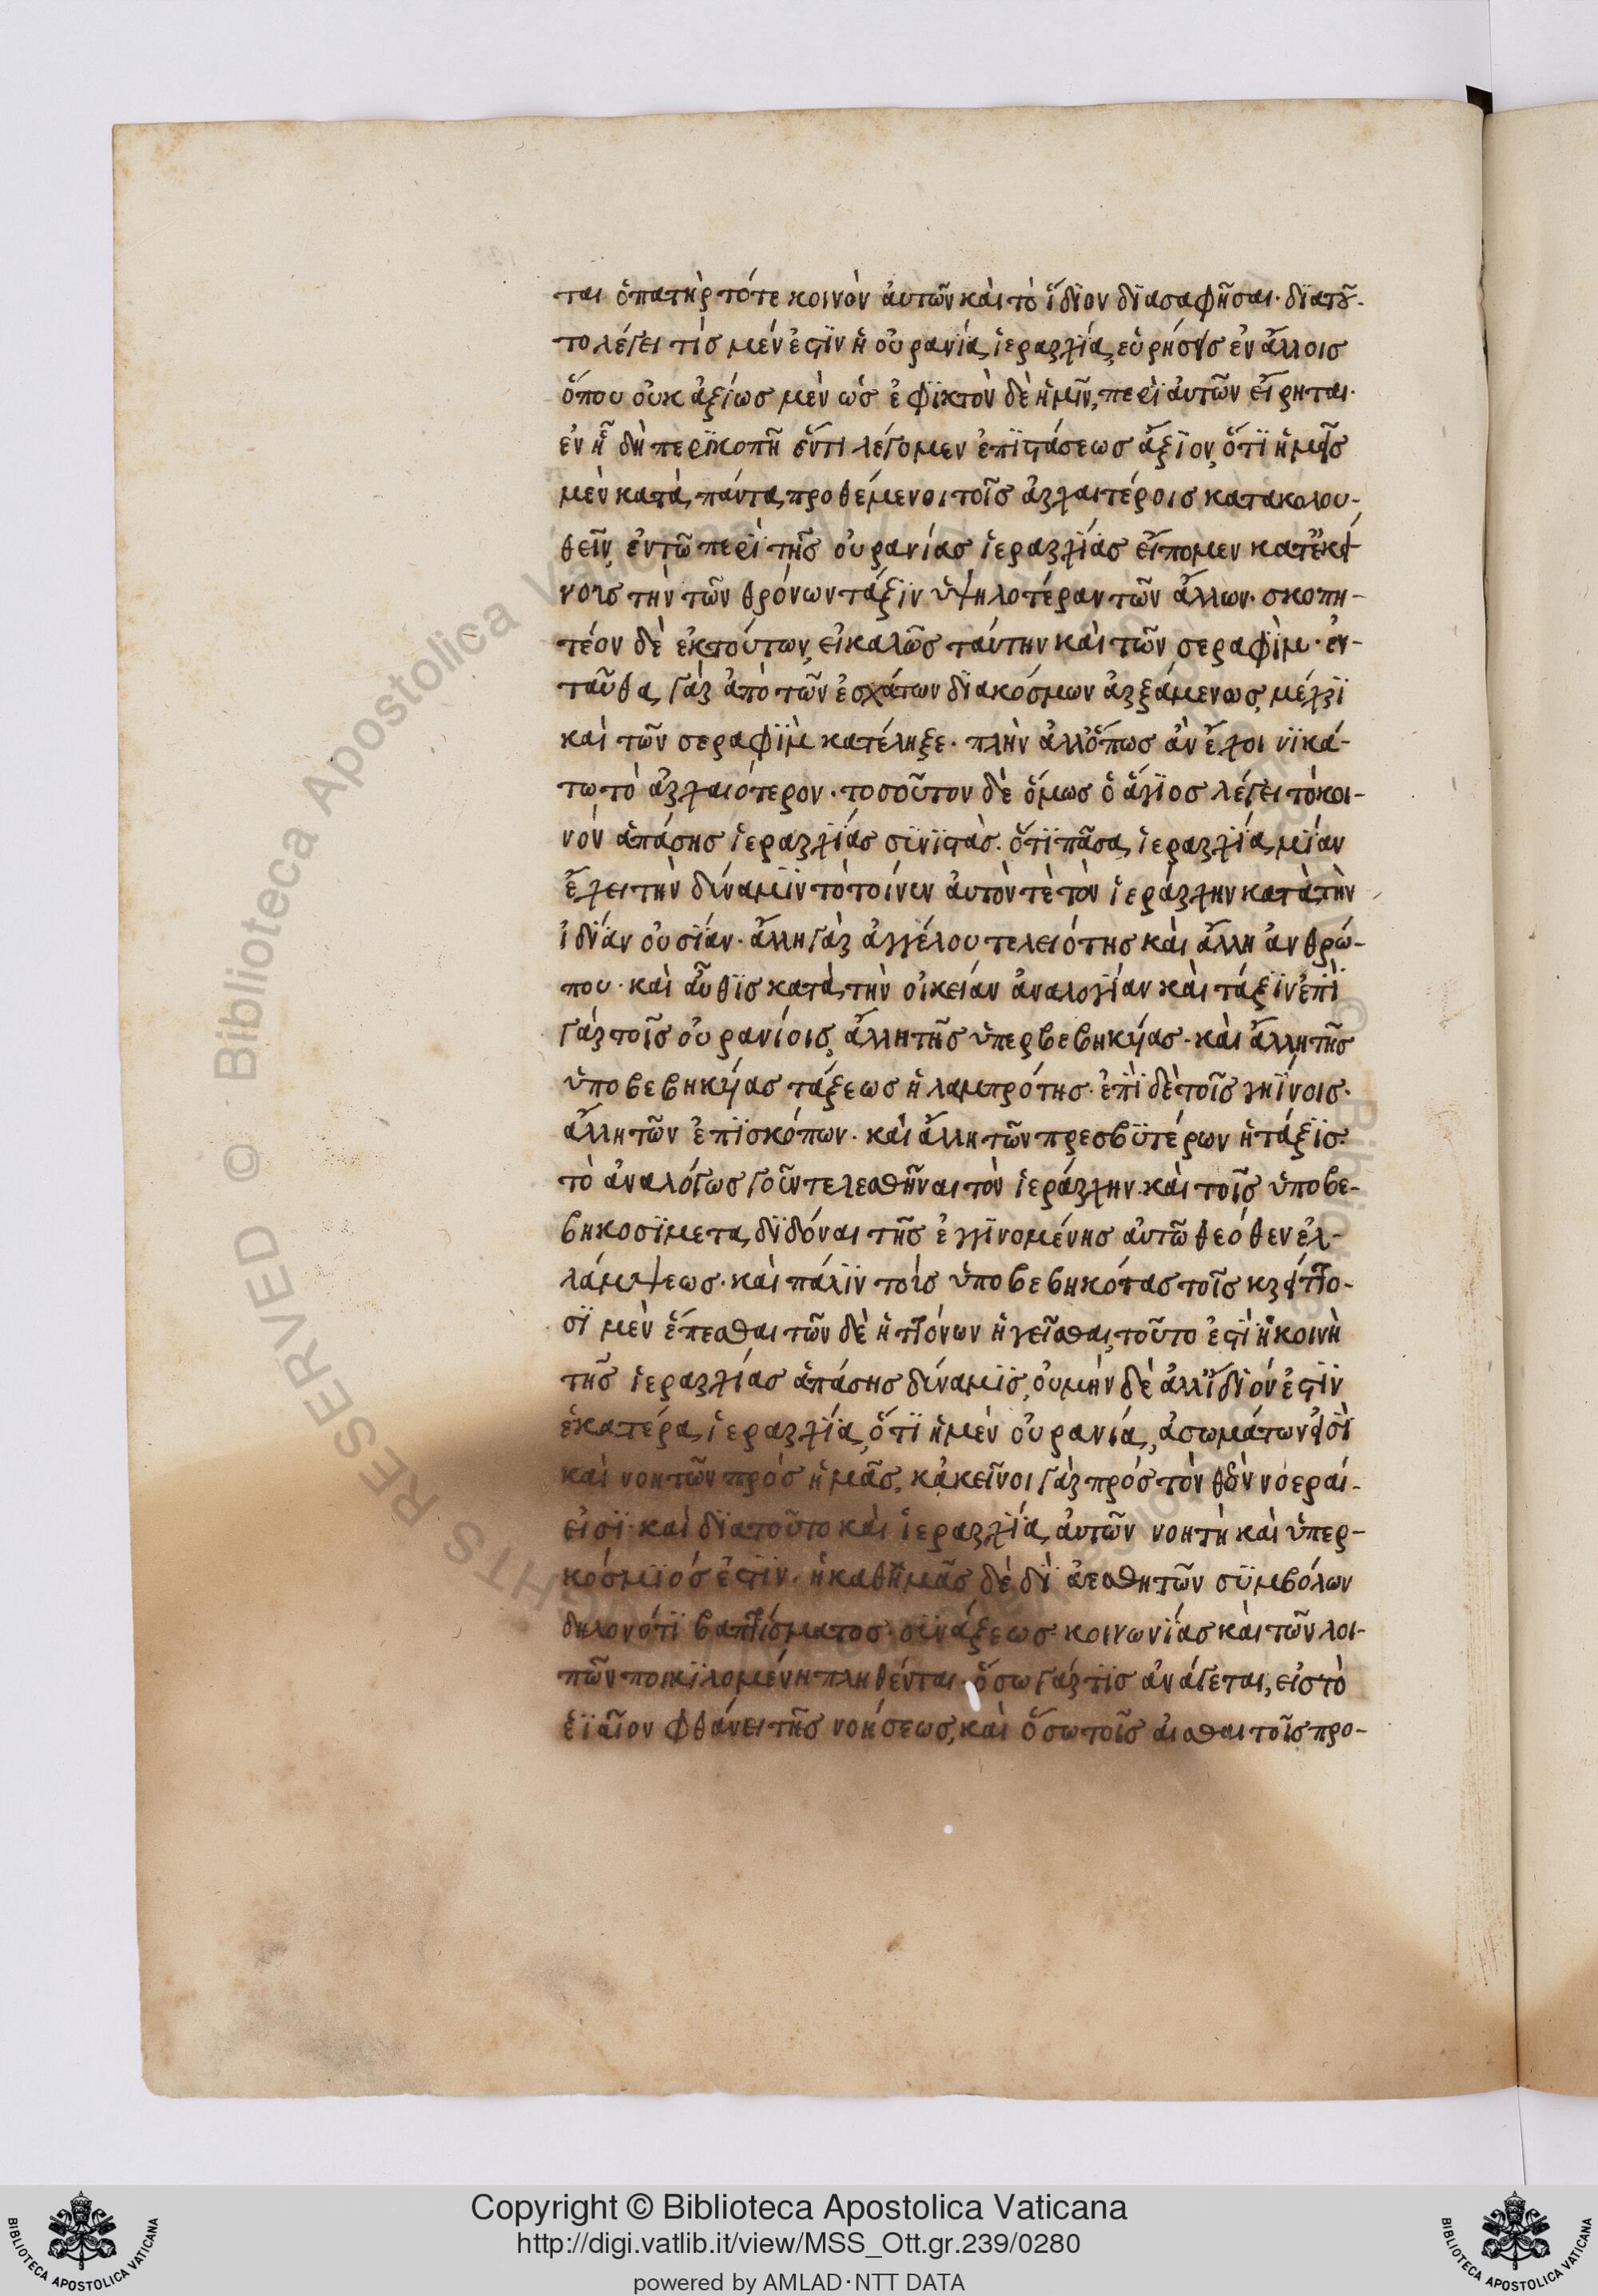 ται ὁ πατὴρ τό τε κοινὸν αὐτῶν καὶ τὸ ἴδϊον δϊασαφῆσαι· δϊατοῦ-
το λέγει τίσ μέν ἐστϊν ἡ οὐρανία ἱεραρχία, εὑρήσεισ ἐν ἄλλοισ
ὅπου οὐκ ἀξίωσ μὲν ὡσ ἐφϊκτὸν δὲ ἡμῖν, περὶ αὐτῶν εἴρηται·
ἐν ᾗ δὴ περϊκοπῇ ἔν τι λέγομεν ἐπϊστάσεωσ ἄξϊον, ὅτϊ ἡμεῖσ
μὲν κατὰ πάντα προθέμενοι τοῖσ ἀρχαιτέροισ κατακολου-
θεῖν, ἐν τῶ περὶ τῆσ οὐρανίασ ἱεραρχίασ εἴπομεν κατ' ἐκεί
νοισ τὴν τῶν θρόνων τάξϊν ὑψηλοτέραν τῶν ἄλλων· σκοπη-
τέον δὲ ἐκ τούτων, εἰ καλῶσ ταύτην καὶ τῶν σεραφὶμ· ἐν-
ταῦθα γὰρ ἀπὸ τῶν ἐσχάτων δϊακόσμων ἀρξάμενωσ, μέχρϊ
καὶ τῶν σεραφϊμ κατέληξε· πλὴν ἀλλ' ὅπωσ ἀν ἔχοι νϊκά-
τω τὸ ἀρχαιότερον· τοσοῦτον δὲ ὅμωσ ὁ ἅγϊοσ λέγει τὸ κοι-
νὸν ἁπάσησ ἱεραρχίασ σϋνϊστὰσ· ὅτϊ πᾶσα ἱεραρχία μίαν
ἔχει τὴν δύναμϊν τὸ τοίνυν αὐτὸν τὲ τὸν ἱεράρχην κατὰ τὴν
ἰδίαν οὐσίαν· ἄλλη γὰρ ἀγγέλου τελειότησ καὶ ἄλλη ἀνθρώ-
που· καὶ αὖθϊσ κατὰ τὴν οἰκείαν ἀναλογίαν καὶ τάξϊν ἐπὶ
γὰρ τοῖσ οὐρανίοισ, ἄλλη τῆσ ὑπερβεβηκυίασ· καὶ ἄλλη τῆσ
ὑποβεβηκυίασ τάξεωσ ἡ λαμπρότησ· ἐπὶ δὲ τοῖσ γηΐνοισ·
ἄλλη τῶν ἐπϊσκόπων· καὶ ἄλλη τῶν πρεσβϋτέρων ἡ τάξϊσ·
τὸ ἀναλόγωσ γοῦν τελεσθῆναι τὸν ἱεράρχην· καὶ τοῖσ ὑποβε-
βηκοσϊ μεταδϊδόναι τῆσ ἐγγϊνομένησ αὐτῶ θεόθεν ἐλ-
λάμψεωσ· καὶ πάλϊν τοὺσ ὑποβεβηκότασ τοῖσ κρείττο-
σϊ μὲν ἕπεσθαι τῶν δὲ ἡττόνων ἡγεῖσθαι, τοῦτο ἐστὶ ἡ κοινὴ
τῆσ ἱεραρχίασ ἁπάσησ δύναμϊσ, οὐ μὴν δὲ ἀλλ' ἴδϊόν ἐστϊν
ἑκατέρα ἱεραρχία, ὅτϊ ἡ μὲν οὐρανία, ἀσωμάτων εἰσὶ
καὶ νοητῶν πρὸσ ἡμᾶσ, κἀκεῖνοι γὰρ πρόσ τὸν θὸν νοεραί-
εἰσϊ· καὶ δϊατοῦτο καὶ ἱεραρχία αὐτῶν νοητὴ καὶ ὑπερ-
κόσμϊόσ ἐστϊν· ἡ καθ' ἡμᾶσ δὲ δϊ' ἀεσθητῶν σϋμβόλων
δηλονότϊ βαπτίσματοσ· σϋνάξεωσ· κοινωνίασ καὶ τῶν λοι-
πῶν ποικϊλομένη πληθένται· ὅσω γάρ τϊσ ἀνάγεται, εἰσ τὸ
ἑϊαῖον φθάνει τῆσ νοήσεωσ, καὶ ὅσω τοῖσ αἰσθαιτοῖσ προ-
Copyright © Biblioteca Apostolica Vaticana
http://digi.vatlib.it/view/MSS_Ott.gr.239/0280
powered by AMLAD·NTT DATA